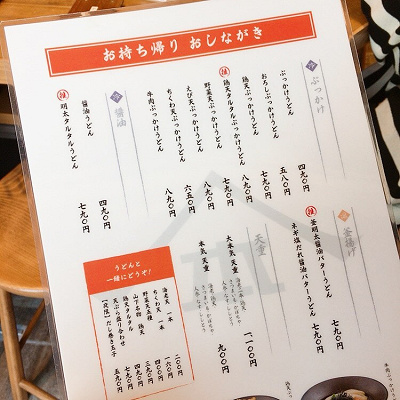 お持ち帰り おしながき
冷 ぶっかけ
ぶっかけうどん 四九〇円
おろしぶっかけうどん 五八〇円
鶏天ぶっかけうどん 七九〇円
推 鶏天タルタルぶっかけうどん 七九〇円
野菜天ぶっかけうどん 八九〇円
えび天ぶっかけうどん 六五〇円
ちくわ天ぶっかけうどん
牛肉ぶっかけうどん 八九〇円
冷 醤油
醤油うどん 四九〇円
推 明太タルタルうどん 七九〇円
釜揚げ
推 釜明太醤油バターうどん 七九〇円
ネギ塩だれ醤油バターうどん 七九〇円
天重
大本気 天重 一一〇〇円
本気 天重 九〇〇円
うどんと
一緒にどうぞ!
海老天 一本 二〇〇円
ちくわ天 一本 一六〇円
野菜天五種 三九〇円
山下名物 鶏天
鶏天タルタル
天ぷら盛り合わせ
【段隠】だし巻き玉子 五九〇円